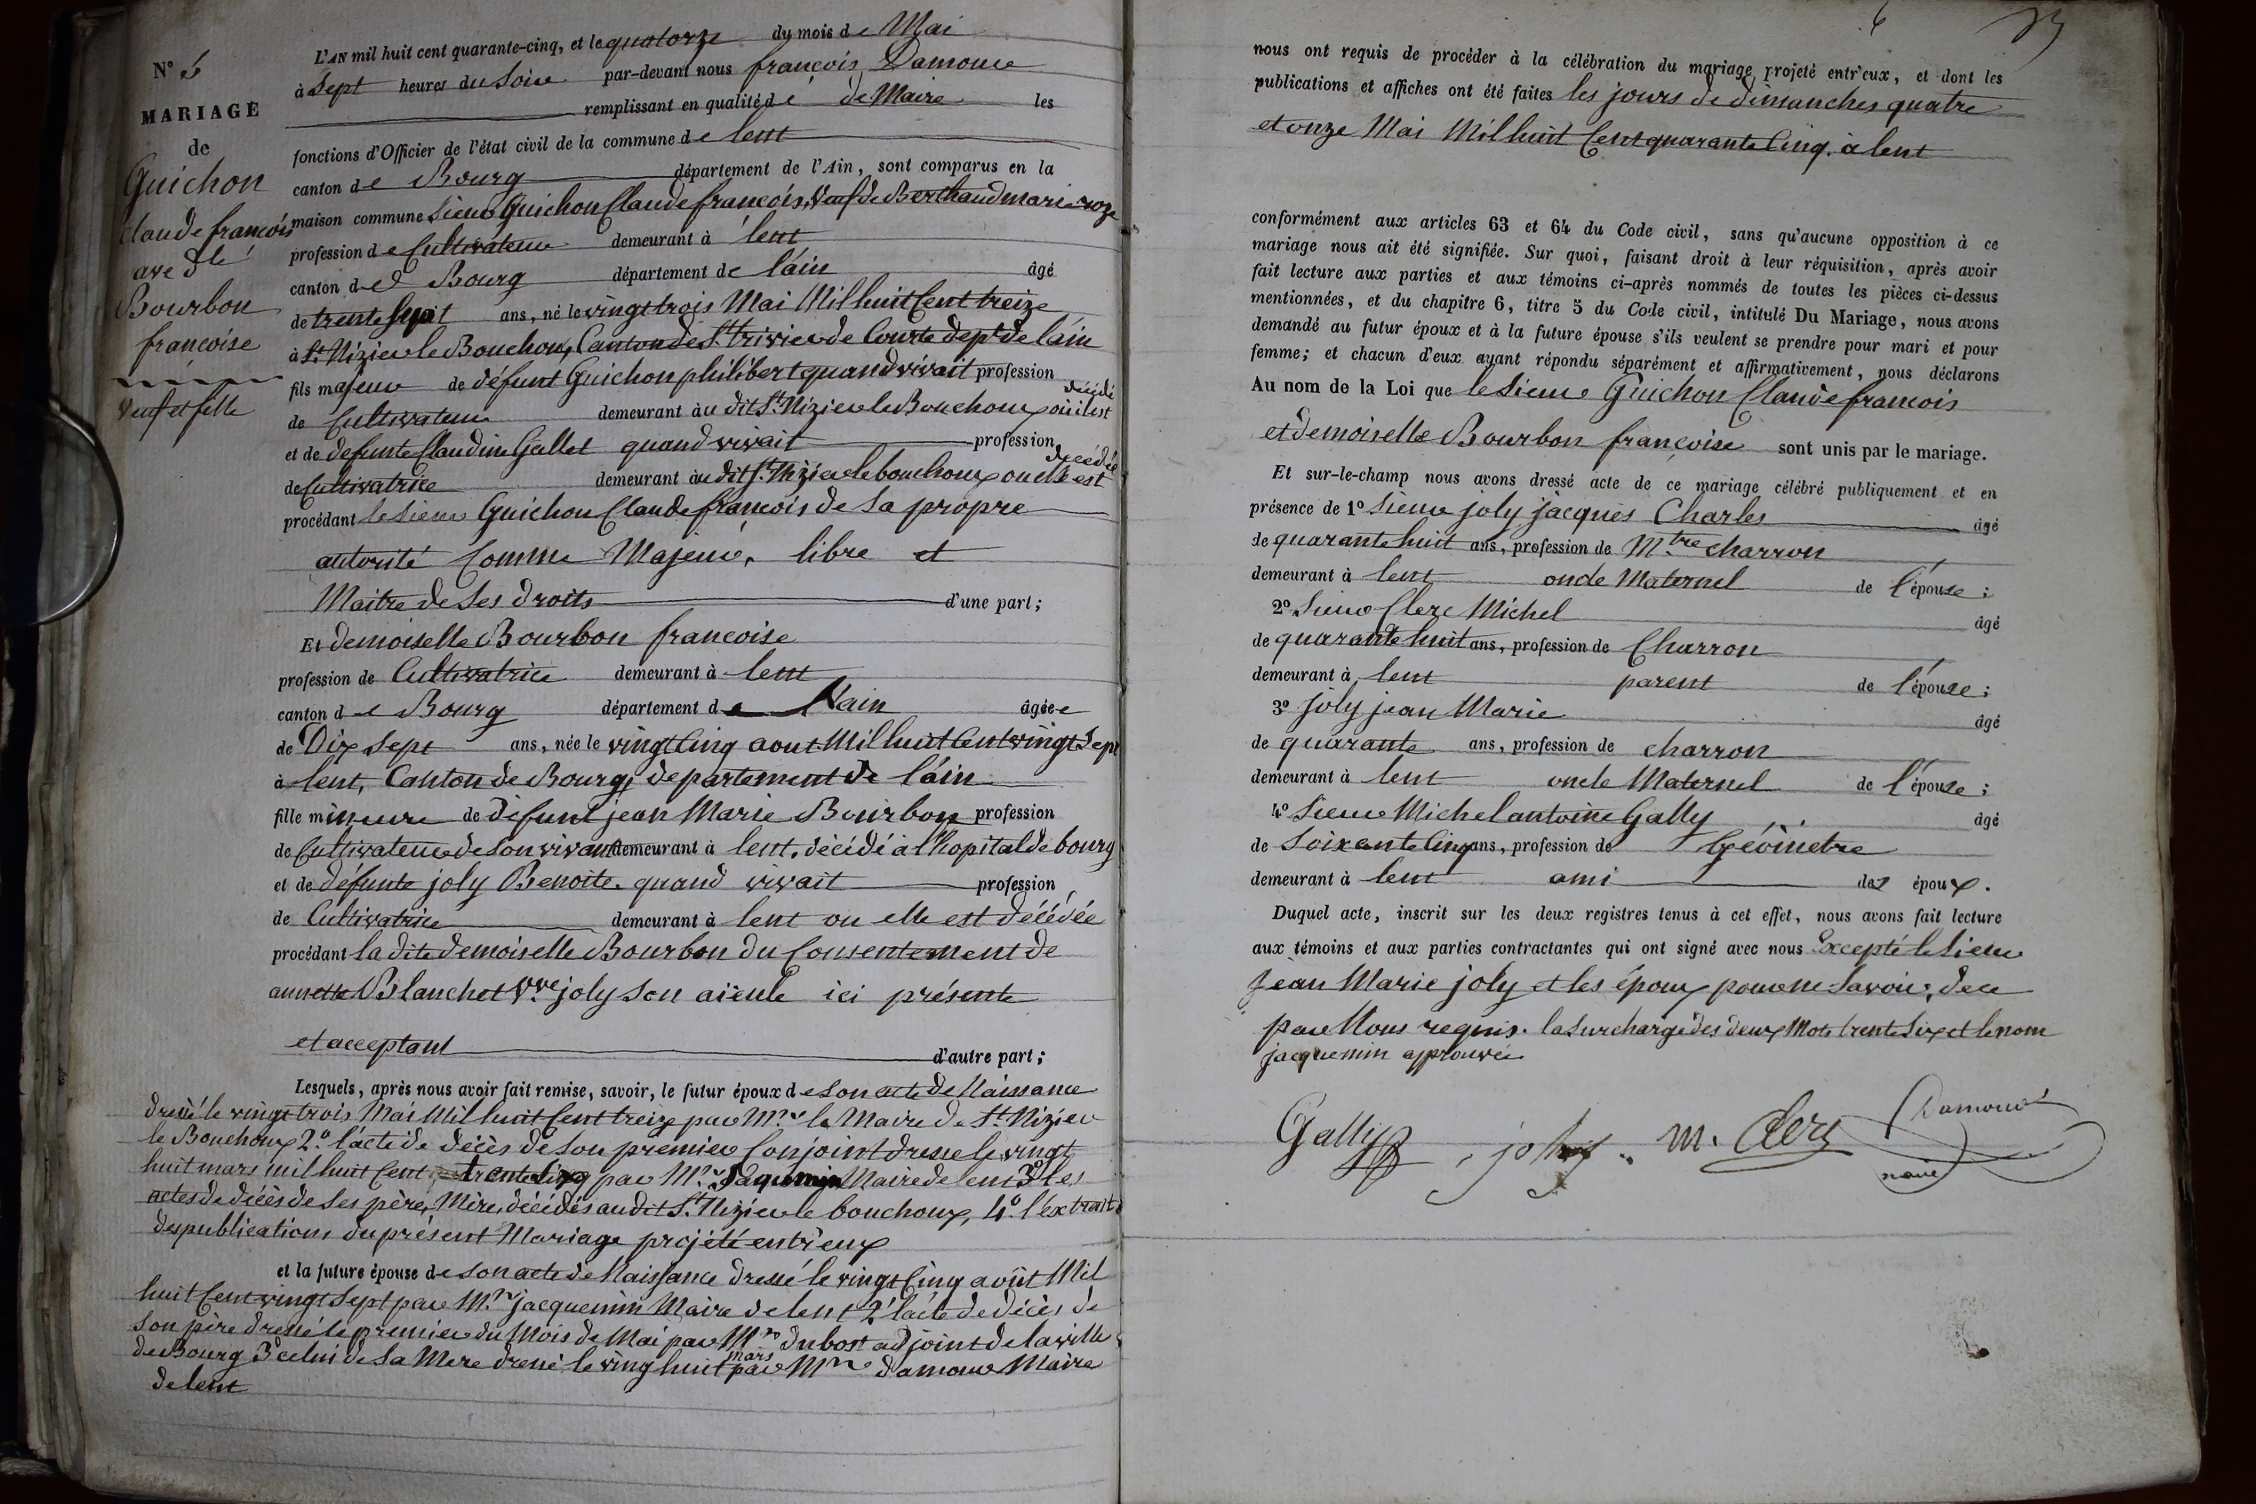 N° 6
MARIAGE
de
Guichon
Claude françois
avec dlé
Bourbon
françoise
Veuf et fille
L'AN mil huit cent quarante-cinq, et le quatorze du mois de Mai
à Sept heures du Soir par-devant nous françois Damour
remplissant en qualité de de Maire les
fonctions d'Officier de l'état civil de la commune de lent
canton de Bourg département de l'Ain, sont comparus en la
maison commune Sieur Guichon Claude françois, Veuf de Berthaud marie roze
profession de Cultivateur demeurant à lent
canton de Bourg département de l'ain âgé
de trente Sept ans, né le vingt trois Mai Mil huit Cent treize
à St Nizier le Bouchoux, Canton de St trivier de Courte dept de l'ain
fils majeur de défunt Guichon philibert quand vivait profession
de Cultivateur demeurant au dit St Nizier le Bouchoux où il est décédé
et de defunte Claudine Gallet quand vivait profession
de Cultivatrice demeurant au dit St Nizier le bouchoux ou elle est decédée
procédant le sieur Guichon Claude françois de sa propre
autorité Comme Majeur, libre et
Maitre de ses droits d'une part;
Et demoiselle Bourbon françoise
profession de Cultivatrice demeurant à lent
canton de Bourg département de l'ain âgée
de Dix sept ans, née le vingt Cinq aout Mil huit Cent vingt Sept
à lent, Canton de Bourg, departement de l'ain
fille mineure de défunt jean Marie Bourbon profession
de Cultivateur de son vivant demeurant à lent, décédé à l'hopital de bourg
et de défunte joly Benoite quand vivait profession
de Cultivatrice demeurant à lent ou elle est décédée
procédant la dite demoiselle Bourbon du Consentement de
annette Blanchet Vve joly son aïeule ici présente
et acceptant d'autre part;
Lesquels, après nous avoir fait remise, savoir, le futur époux de son acte de Naissance
dressé le vingt trois Mai Mil huit Cent treize par Mr le Maire de St Nizier
le Bouchoux 2° l'acte de décès de son premier Conjoint dressé le vingt
huit mars mil huit Cent trente six par Mr Jaquemin Maire de lent 3° les
actes de décès de ses père, Mère, décédés au dit St Nizier le bouchoux, 4° l'extrait
des publications du présent Mariage projété entr'eux
et la future épouse de son acte de Naissance dressé le vingt Cinq août Mil
huit Cent vingt Sept par Mr jacquemin Maire de lent 2° l'acte de décès de
son père dressé le premier du Mois de Mai par Mr dubost adjoint de la ville
de Bourg 3° celui de sa Mere dressé le vingt huit mars par Mr damour Maire
de lent
nous ont requis de procéder à la célébration du mariage projeté entr'eux, et dont les
publications et affiches ont été faites les jours de dimanches quatre
et onze Mai Mil huit Cent quarante Cinq à lent
conformément aux articles 63 et 64 du Code civil, sans qu'aucune opposition à ce
mariage nous ait été signifiée. Sur quoi, faisant droit à leur réquisition, après avoir
fait lecture aux parties et aux témoins ci-après nommés de toutes les pièces ci-dessus
mentionnées, et du chapitre 6, titre 5 du Code civil, intitulé Du Mariage, nous avons
demandé au futur époux et à la future épouse s'ils veulent se prendre pour mari et pour
femme; et chacun d'eux ayant répondu séparément et affirmativement, nous déclarons
Au nom de la Loi que le Sieur Guichon Claude françois
et demoiselle Bourbon françoise sont unis par le mariage.
Et sur-le-champ nous avons dressé acte de ce mariage célébré publiquement et en
présence de 1° Sieur joly jacques Charles âgé
de quarante huit ans, profession de Mtre charron
demeurant à lent oncle Maternel de l'épouse;
2° Sieur Clerc Michel âgé
de quarante huit ans, profession de Charron
demeurant à lent parent de l'épouse;
3° joly jean Marie âgé
de quarante ans, profession de charron
demeurant à lent oncle Maternel de l'épouse;
4° Sieur Michel antoine Gally âgé
de Soixante Cinq ans, profession de Géomètre
demeurant à lent ami des époux.
Duquel acte, inscrit sur les deux registres tenus à cet effet, nous avons fait lecture
aux témoins et aux parties contractantes qui ont signé avec nous Excepté le Sieur
Jean Marie joly et les époux pour ne savoir, de ce
par Nous requis. la surcharge des deux Mots trente six et le nom
jacquemin approuvée
Gally joly M. Clerc Damour
maire